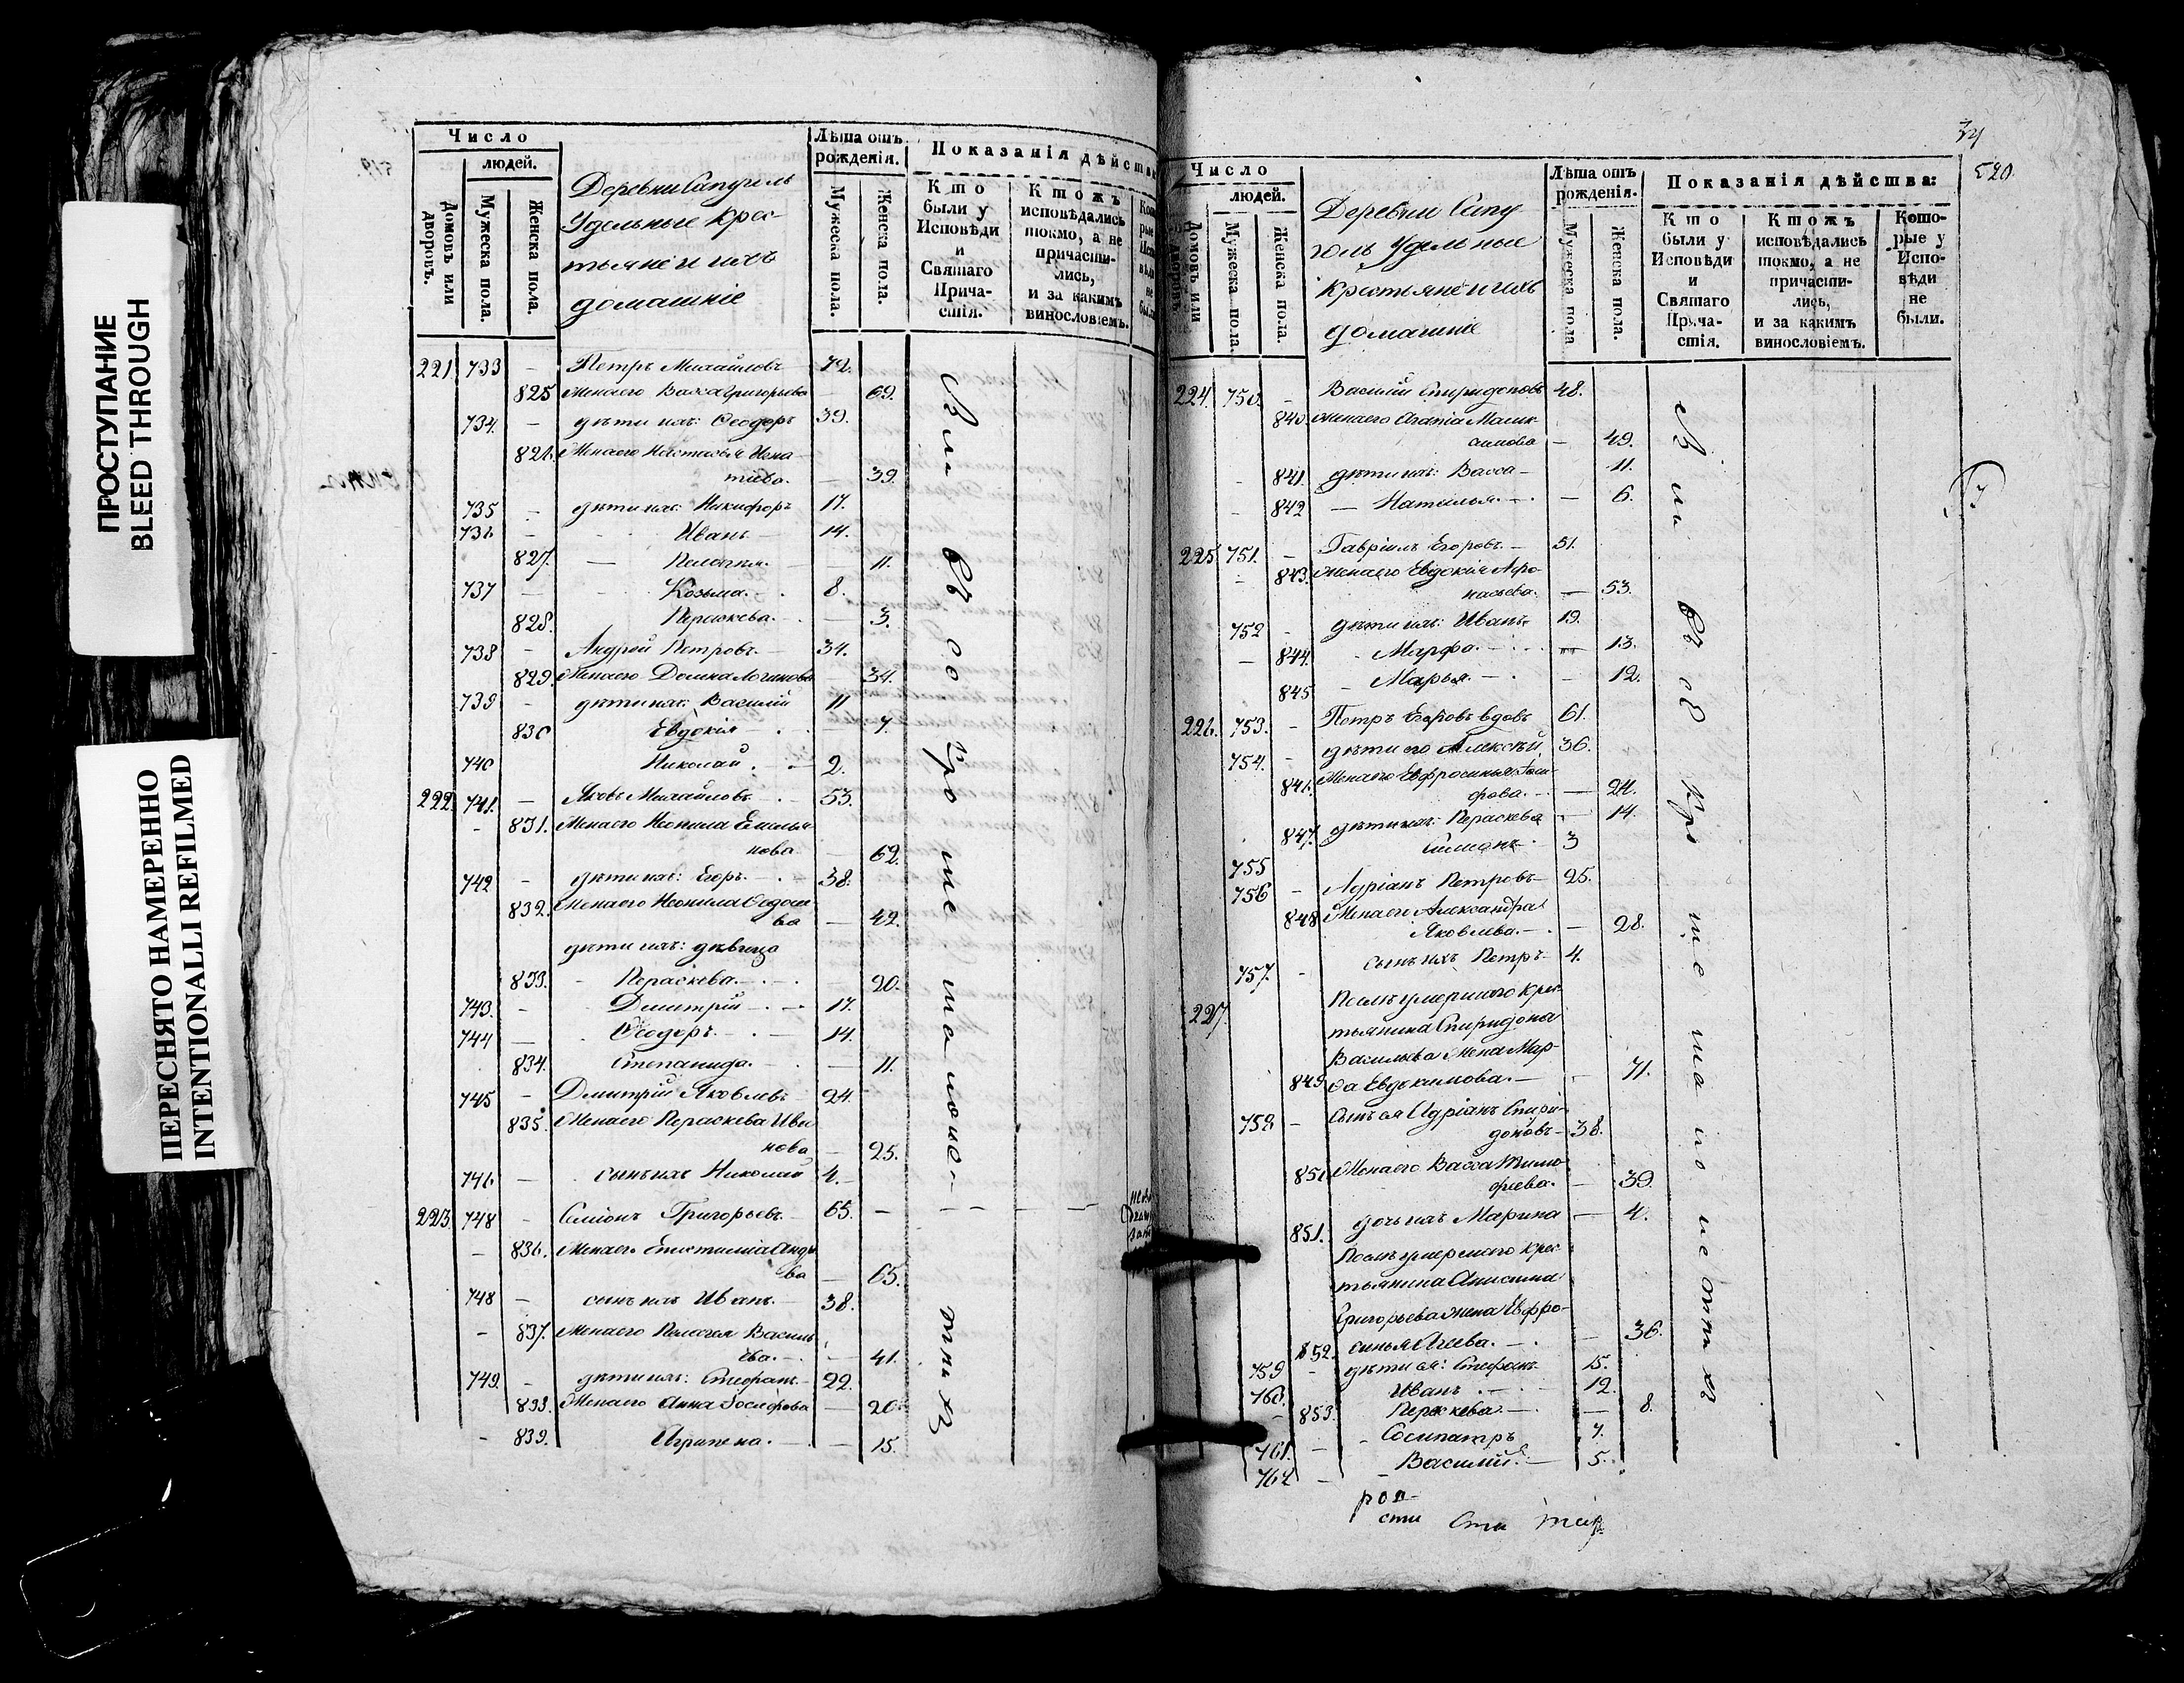 ПРОСТУПАНИЕ
BLEED THROUGH
ПЕРЕСНЯТО НАМЕРЕННО
INTENTIONALLI REFILMED
Число
людей.
Домовъ или дворовъ.
Мужеска пола.
Женска пола.
Деревни Сапуголь
Удельные крес-
тьяне и ихъ
домашніе
Лѣта отъ рожденія.
Мужеска пола.
Женска пола.
Показанія дѣйства
Кто были у Исповѣди и Святаго Прича-стія.
Ктожъ исповѣдались токмо, а не причасти-лись, и за какимъ винословіемъ.
221 733 – Петръ Михайловъ 72.
825 Жена его Васса Григорьева – 69.
734. – дѣти ихъ: Ѳеодоръ 39.
826. Жена его Настасья Игна-
тіева. – 39.
735 – дѣти ихъ: Никифоръ 17.
736 – Иванъ – 14.
827. – Пелагия. – 11.
737 – Козьма. – 8.
828. Параскева. – 3.
738 – Андрей Петровъ. – 34.
829. Жена его Домна Логинова – 34.
739 – дѣти ихъ: Василій 11
830 Евдокія – 7.
740 Николай. – 2.
222. 741. – Яковъ Михайловъ – 53.
831. Жена его Неонила Емелья-
нова – 62.
742 – дѣти ихъ: Егоръ. – 38.
832. Жена его Неонила Ѳедосее-
ва – 42.
дѣти ихъ: дѣвица
833. – Параскева. – 20.
743. – Димитрій – 17.
744 – Ѳеодоръ. – 14.
834. Степанида. – 11.
745 – Димитрій Яковлевъ 24.
835. Жена его Параскева Ива-
нова – 25.
746 – сынъ ихъ Николай 4.
223. 748 – Симіонъ Григорьевъ – 65.
836. Жена его Епистимія
ва – 65.
748 – сынъ ихъ Иванъ. – 38.
837. Жена его Пелагея Василь-
ева. – 41.
749. – дѣти ихъ: Стефанъ. – 22.
838. Жена его Анна Іосифова – 20.
839. Агрипена. – 15.
Вси въ
34
520
Число
людей.
Домовъ или дворовъ.
Мужеска пола.
Женска пола.
Деревни Сапу
голь Удельные
крестьяне и ихъ
домашніе
Лѣта отъ рожденія.
Мужеска пола
Женска пола.
Показанія дѣйства:
Кто были у Исповѣди и Святаго Прича-стія.
Ктожъ исповѣдались токмо, а не причасти-лись, и за какимъ винословіемъ.
Кото-рые у Испо-вѣди не были.
224. 750. – Василій Спиридоновъ 48.
840. Жена его Агапія Макси-
симова – 49.
841. дѣти ихъ: Васса – 11.
842 – Наталья. – 6.
225 751. – Гавріилъ Егоровъ. – 51.
843. Жена его Евдокія Афо-
насьева. – 53.
752 – дѣти ихъ: Иванъ. 19.
844. Марфа. – 13.
845 – Марья. – 12.
226. 753. – Петръ Егоровъ вдовъ 61.
754. – дѣти его Алексѣй 36.
846. Жена его Евфросинья
24.
847. дѣти ихъ: Параскева – 14.
755 3
756 – Адріанъ Петровъ – 25.
848 Жена его Александра
Яковлева. – 28.
757. – сынъ ихъ Петръ – 4.
227. Послѣ умершаго крес-
тьянина Спиридона
Васильева жена Мар-
ѳа Евдокимова. –
849 71.
758 – Сынъ ея Адріанъ Спири-
доновъ – 38.
850 Жена его Васса Тимо-
феева. – 39.
851. дочь ихъ Марина – 4.
Послѣ умершаго крес-
тьянина Анисима
Григорьева жена Евфро-
852. синья Агеева. – 36.
759 – дѣти ея: Стефанъ 15.
760. Иванъ – 12.
853. Параскева. – 8.
761. – Сосипатръ 7.
762 – Василій – 5.
Вси въ